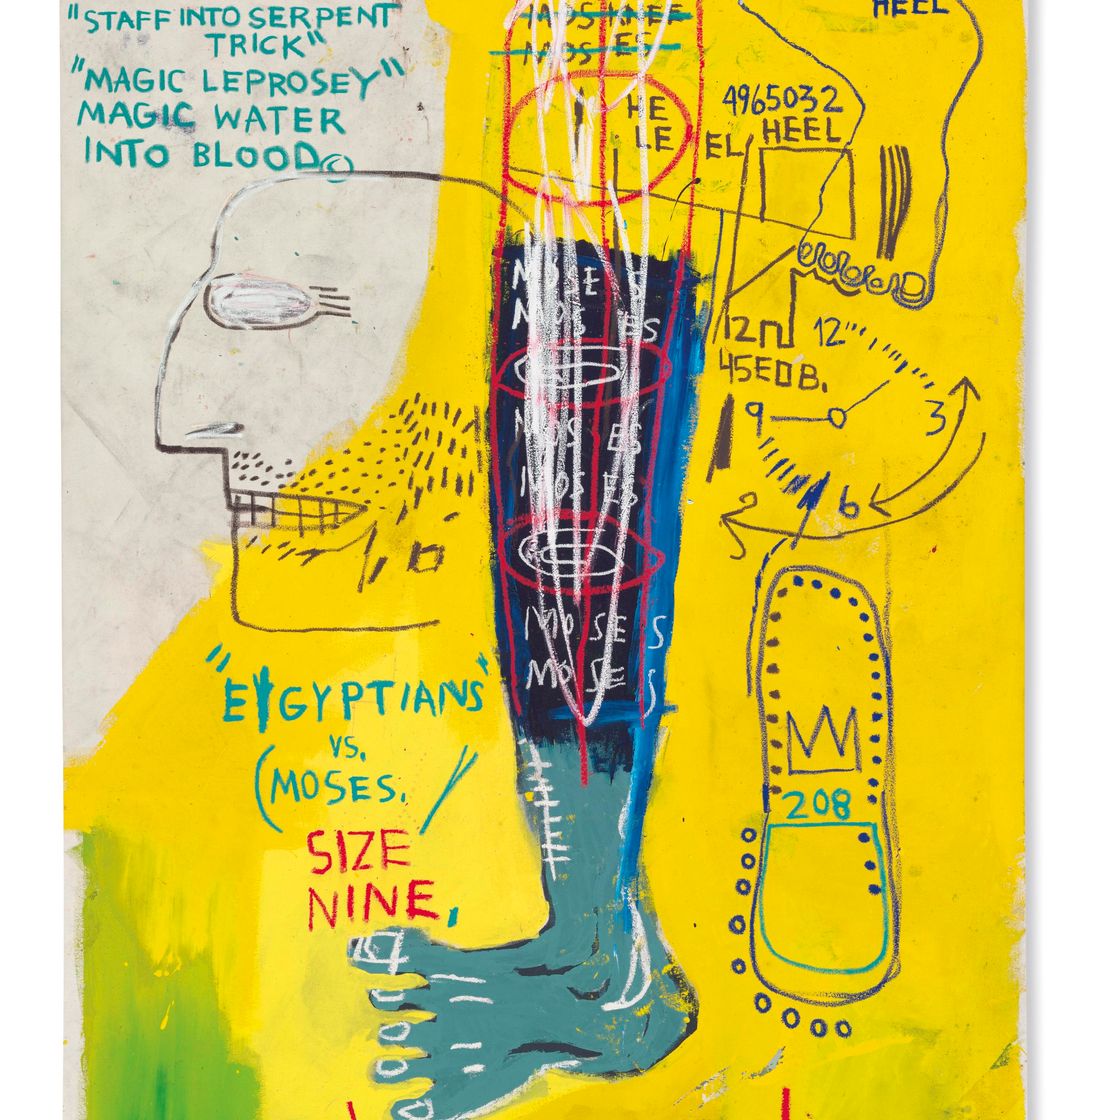 "STAFF INTO SERPENT
TRICK"
"MAGIC LEPROSEY"
MAGIC WATER
INTO BLOOD©
MOS ES
HE
LE
HEEL
4965032
HEEL
EL
MOSES
MOSES
MOSES
MOSES
MOSES
MOSES
12"'
45EOB.
9
3
6
208
"EYGYPTIANS"
VS.
(MOSES.
SIZE
NINE,